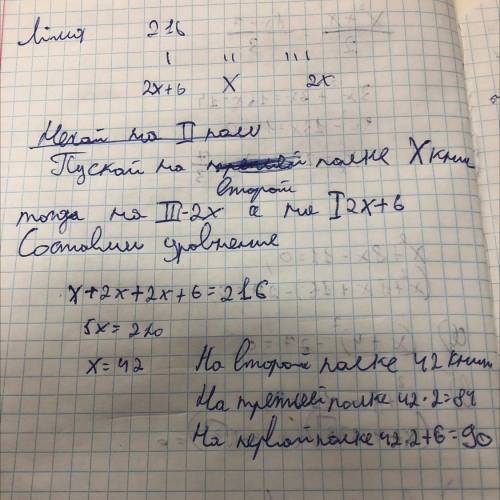 216
I II III
2x+6 X 2x
Нехай на II поли
Пускай на второй полке X книг
тогда на III-2x а на I 2x+6
Составим уровнение
x+2x+2x+6=216
5x=210
x=42
На второй полке 42 книги
На третьей полке 42·2=84
На первой полке 42·2+6=90